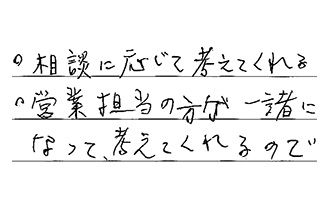 ○相談に応じて考えてくれる
○営業担当の方が一諸に
なって、考えてくれるので